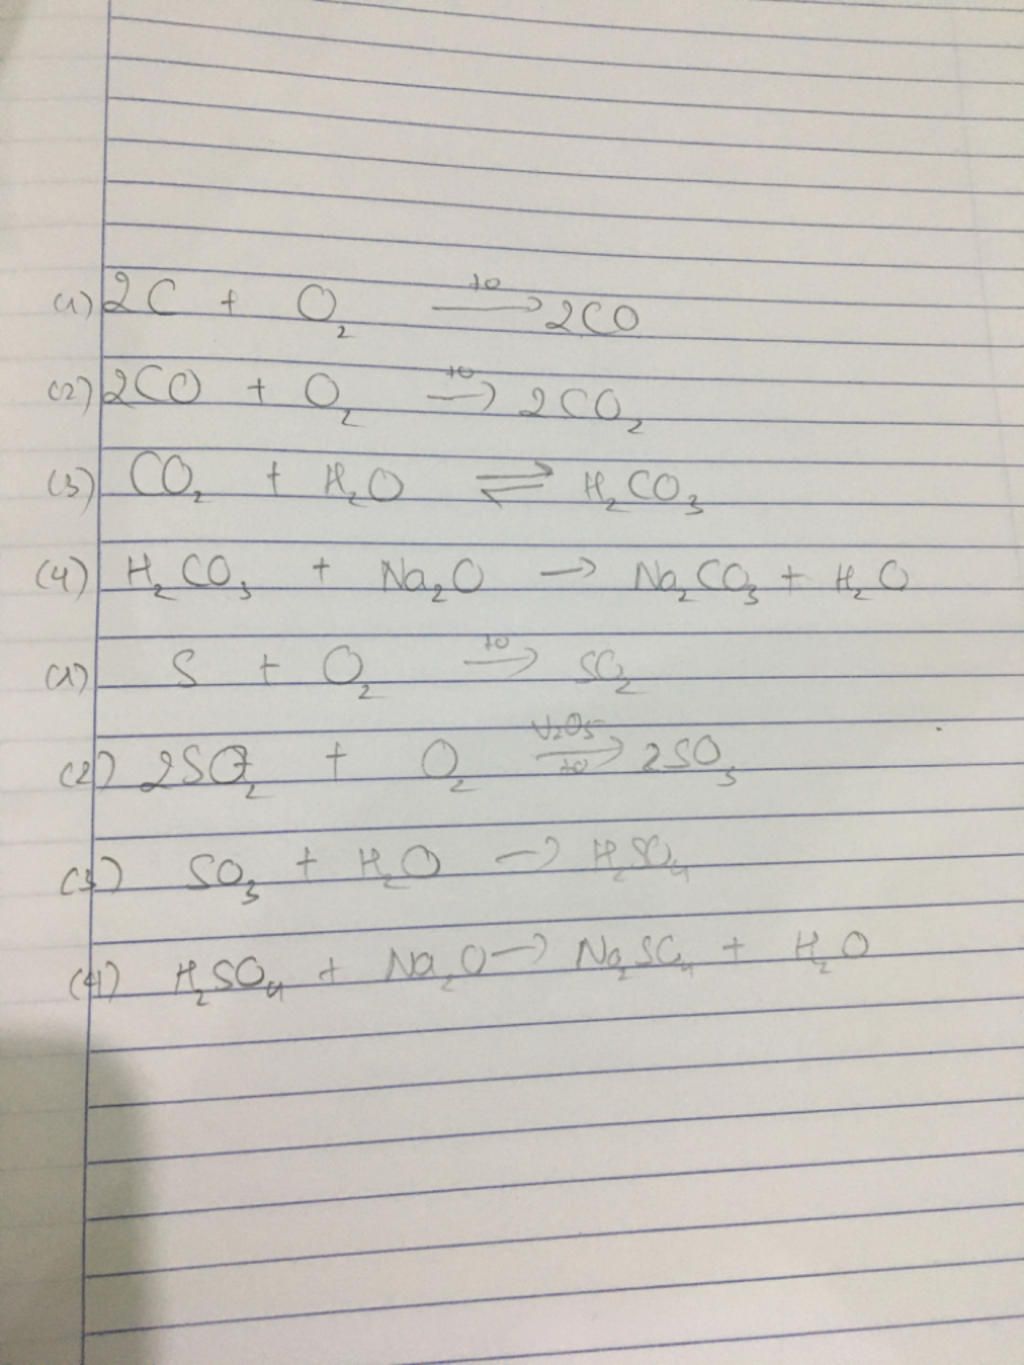 (1) 2C + O₂ —t⁰→ 2CO
(2) 2CO + O₂ —t⁰→ 2CO₂
(3) CO₂ + H₂O ⇌ H₂CO₃
(4) H₂CO₃ + Na₂O → Na₂CO₃ + H₂O
(1) S + O₂ —t⁰→ SO₂
(2) 2SO₂ + O₂ —V₂O₅, t⁰→ 2SO₃
(3) SO₃ + H₂O → H₂SO₄
(4) H₂SO₄ + Na₂O → Na₂SO₄ + H₂O